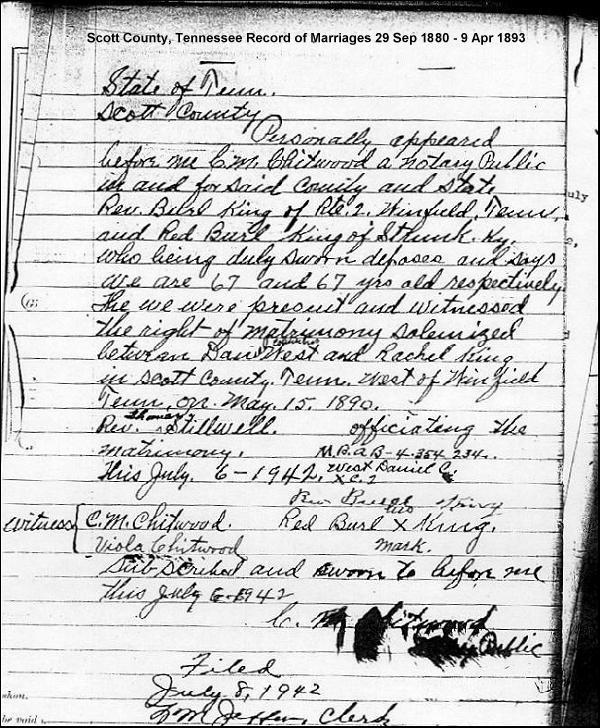 Scott County, Tennessee Record of Marriages 29 Sep 1880 - 9 Apr 1893
State of Tenn.
Scott County
Personally appeared
before me C.M. Chitwood a Notary Public
in and for said County and State
uly
Rev. Burl King of Rte. 2. Winfield, Tenn,
and Red Burl King of Strunk. Ky.
who being duly sworn deposes and says
we are 67 and 67 yrs old respectively
the we were present and witnessed
the right of matrimony solemized
between Dan West and Rachel King
in Scott County. Tenn. West of Winfield
Tenn, on May. 15. 1890.
Rev. Stillwell. officiating the
matrimony. M.B.a B-4-354 234.
This July. 6-1942. West Daniel C.
X C. 2
Rev
his
witness C.M. Chitwood. Red Burl X King.
Viola Chitwood mark.
Subscribed and sworn to before me
this July 6-1942
C. M Chitwood
Public
Filed
July 8, 1942
Clerk